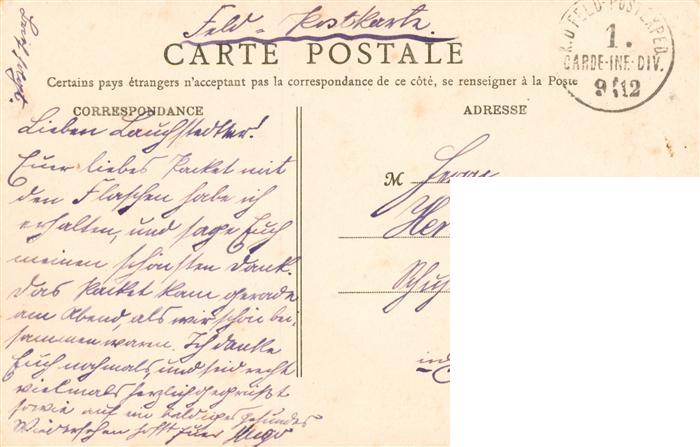 Feld-Postkarte.
CARTE POSTALE
Certains pays étrangers n'acceptant pas la correspondance de ce côté, se renseigner à la Poste
K.D. FELD-POSTEXPED.
1.
GARDE-INF.-DIV.
9 12
CORRESPONDANCE
Lieben Lauchstedter!
Euer liebes Packet mit
den Flaschen habe ich
erhalten, und sage Euch
meinen schönsten Dank.
Das Packet kam gerade
am Abend, als wir schön bei-
sammen waren. Ich danke
Euch nochmals, und seid recht
vielmals herzlich gegrüßt
sowie auf ein baldiges gesundes
Wiedersehen hofft Euer Hugo
ADRESSE
M
Her